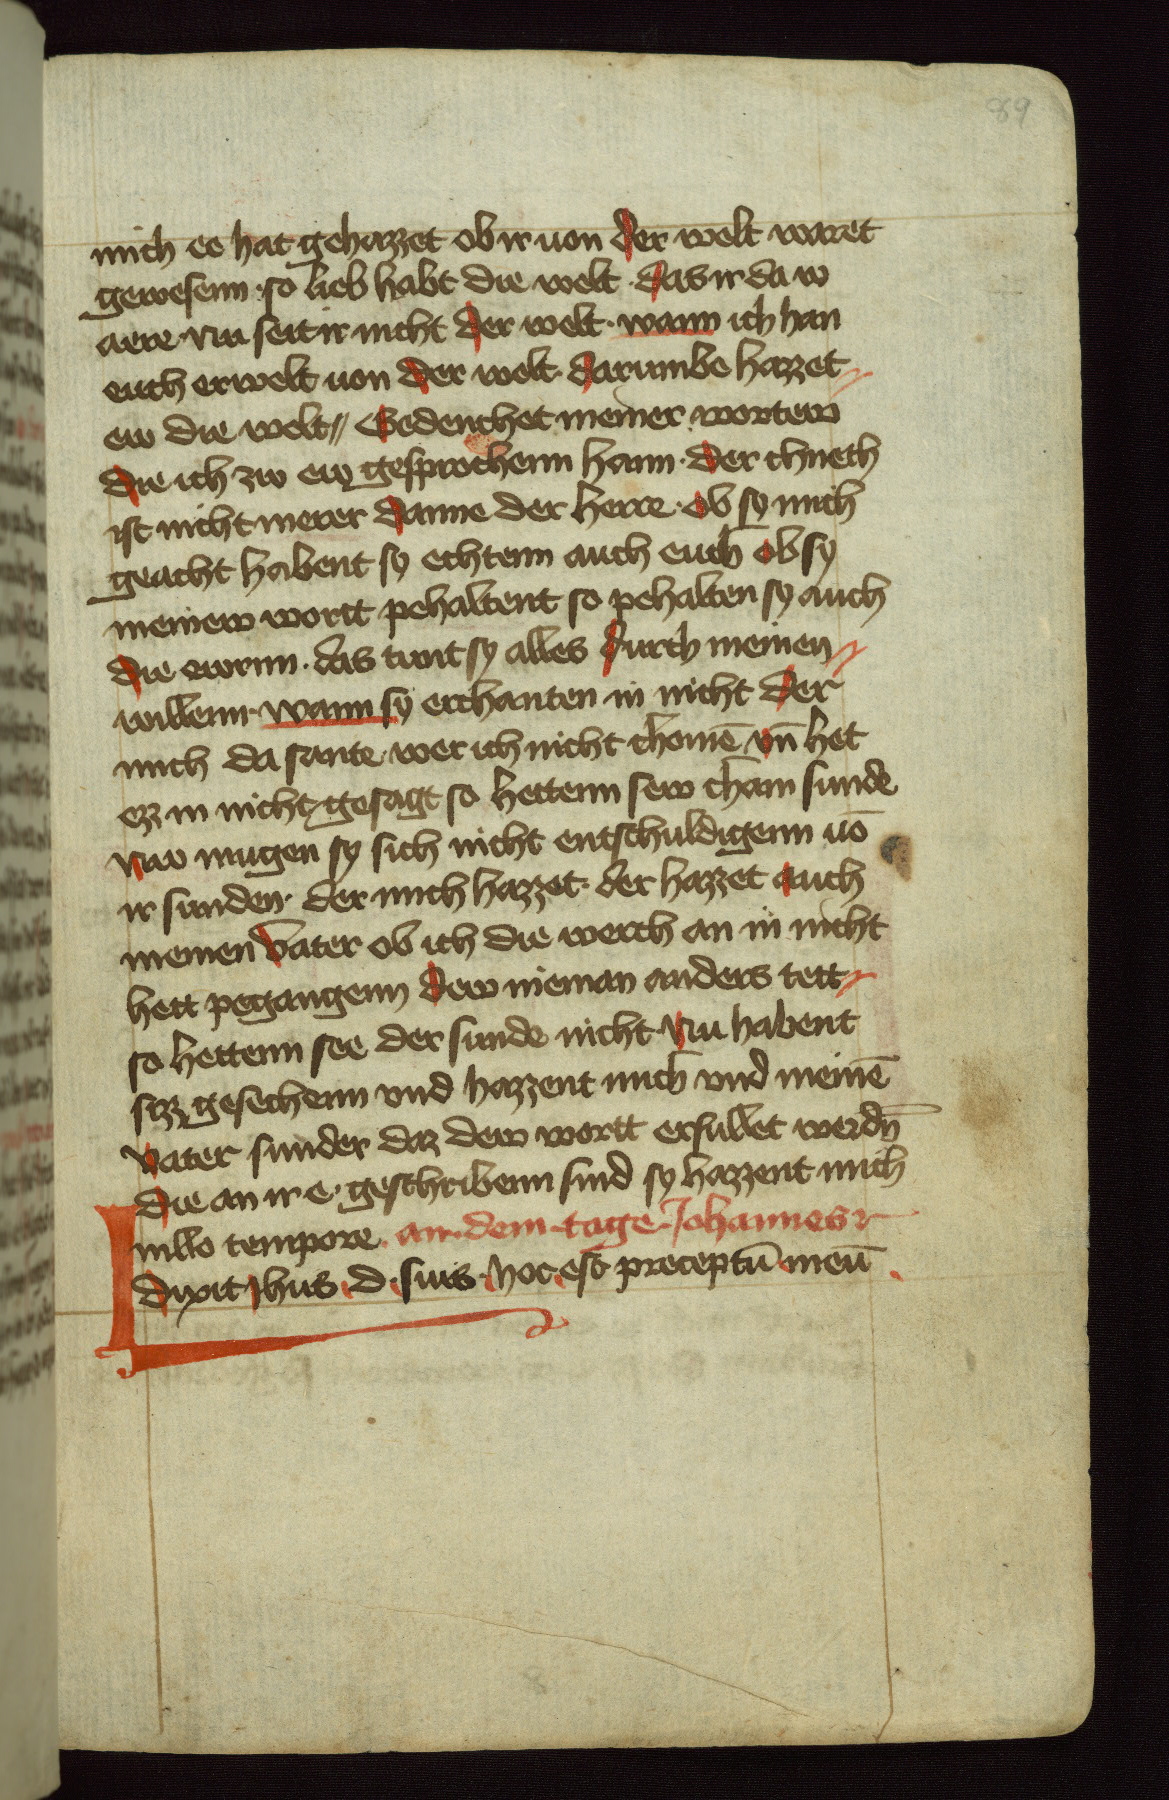 89
mich ee hat gehazzet ob ir uon der welt waret
gewesenn · so lieb habt die welt · das ir da w
aere · nu seit ir nicht der welt · wann ich han
euch erwelt uon der welt · darumbe hazzet
ew die welt // Gedenchet meiner wortew
die ich zw ew gesprochenn hann · der chnech
ist nicht merer danne der herre · ob sy mich
geacht habent sy echtenn auch euch ob sy
meinew wortt pehaltent so pehalten sy auch
die ewrnn · das tunt sy alles durch meinen
willenn · wann sy erchanten in nicht der
mich da sante · wer ich nicht chomē vn̄ het
ez in nicht gesagt so hettenn sew chain sunde
nw mugen sy sich nicht entschuldigenn uō
ir sunden · der mich hazzet · der hazzet auch
meinen vater ob ich die werch an in nicht
hett pegangenn dew nieman anders tett
so hettenn see der sunde nicht · Nu habent
siz gesechenn vnd hazzent mich vnd meinē
vater sunder daz dew wortt erfullet werdn̄
die an ir e · geschribenn sind sy hazzent mich
Inillo tempore · an · dem · tage · Johannes
dixit Ihus · d · suis · hoc est preceptū meū